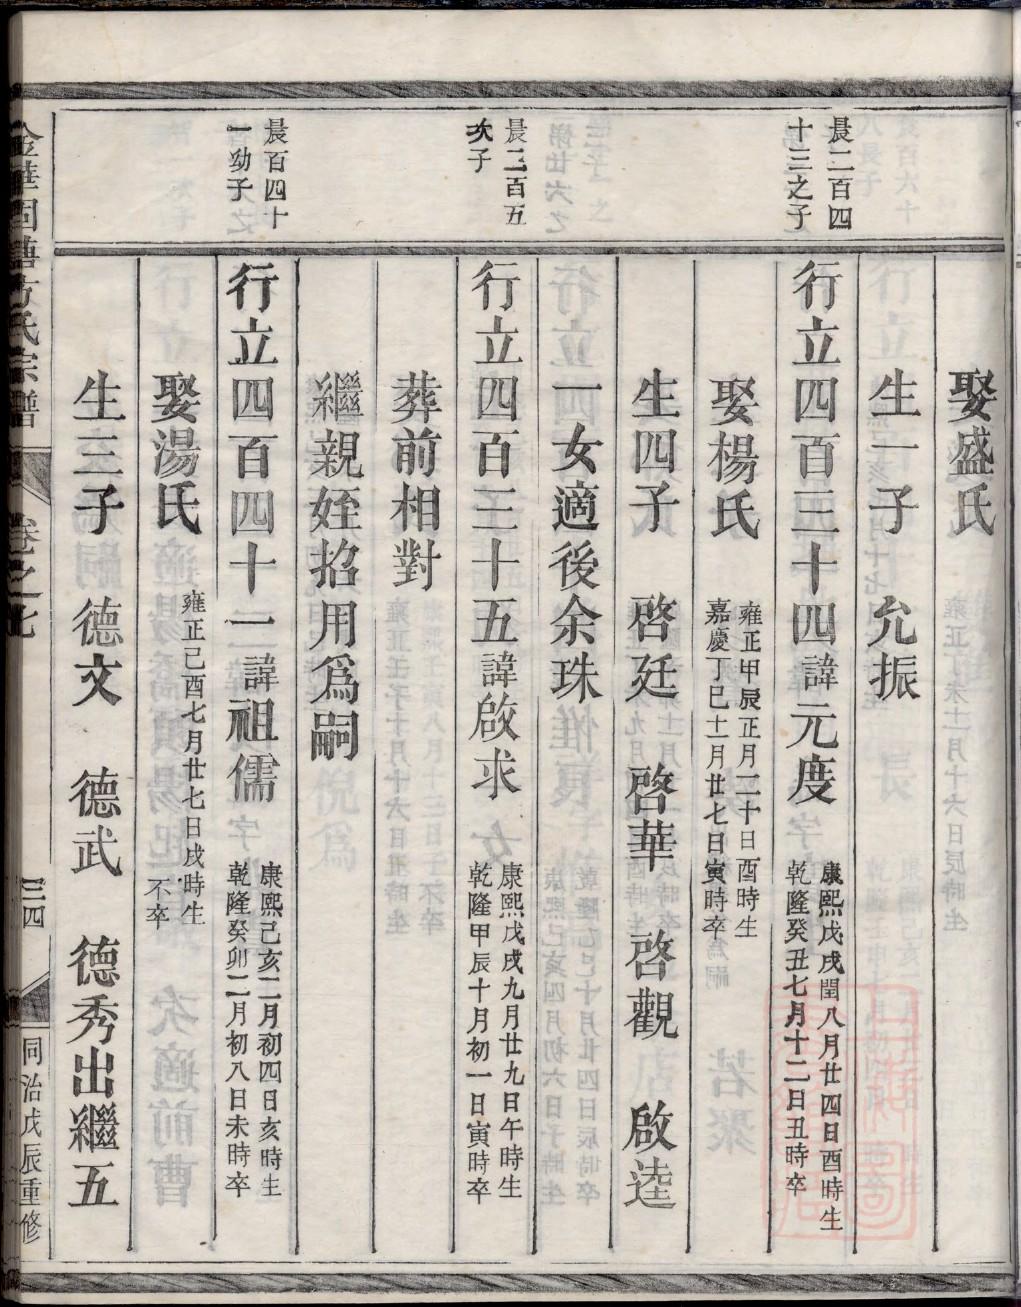 娶盛氏
生一子　允振
晨二百四
十三之子
行立四百三十四諱元度
康熙戊戌閏八月廿四日酉時生
乾隆癸丑七月十二日丑時卒
娶楊氏
雍正甲辰正月二十日酉時生
嘉慶丁巳十一月廿七日寅時卒
生四子　啓廷　啓華　啓觀　啟逵
一女適後余珠
晨二百五
次子
行立四百三十五諱啟求
康熙戊戌九月廿九日午時生
乾隆甲辰十月初一日寅時卒
葬前相對
繼親姪招用爲嗣
晨百四十
一幼子
行立四百四十一諱祖儒
康熙己亥二月初四日亥時生
乾隆癸卯二月初八日未時卒
娶湯氏
雍正己酉七月廿七日戌時生
不卒
生三子　德文　德武　德秀出繼五
方氏宗譜
卷之七
三四
同治戊辰重修